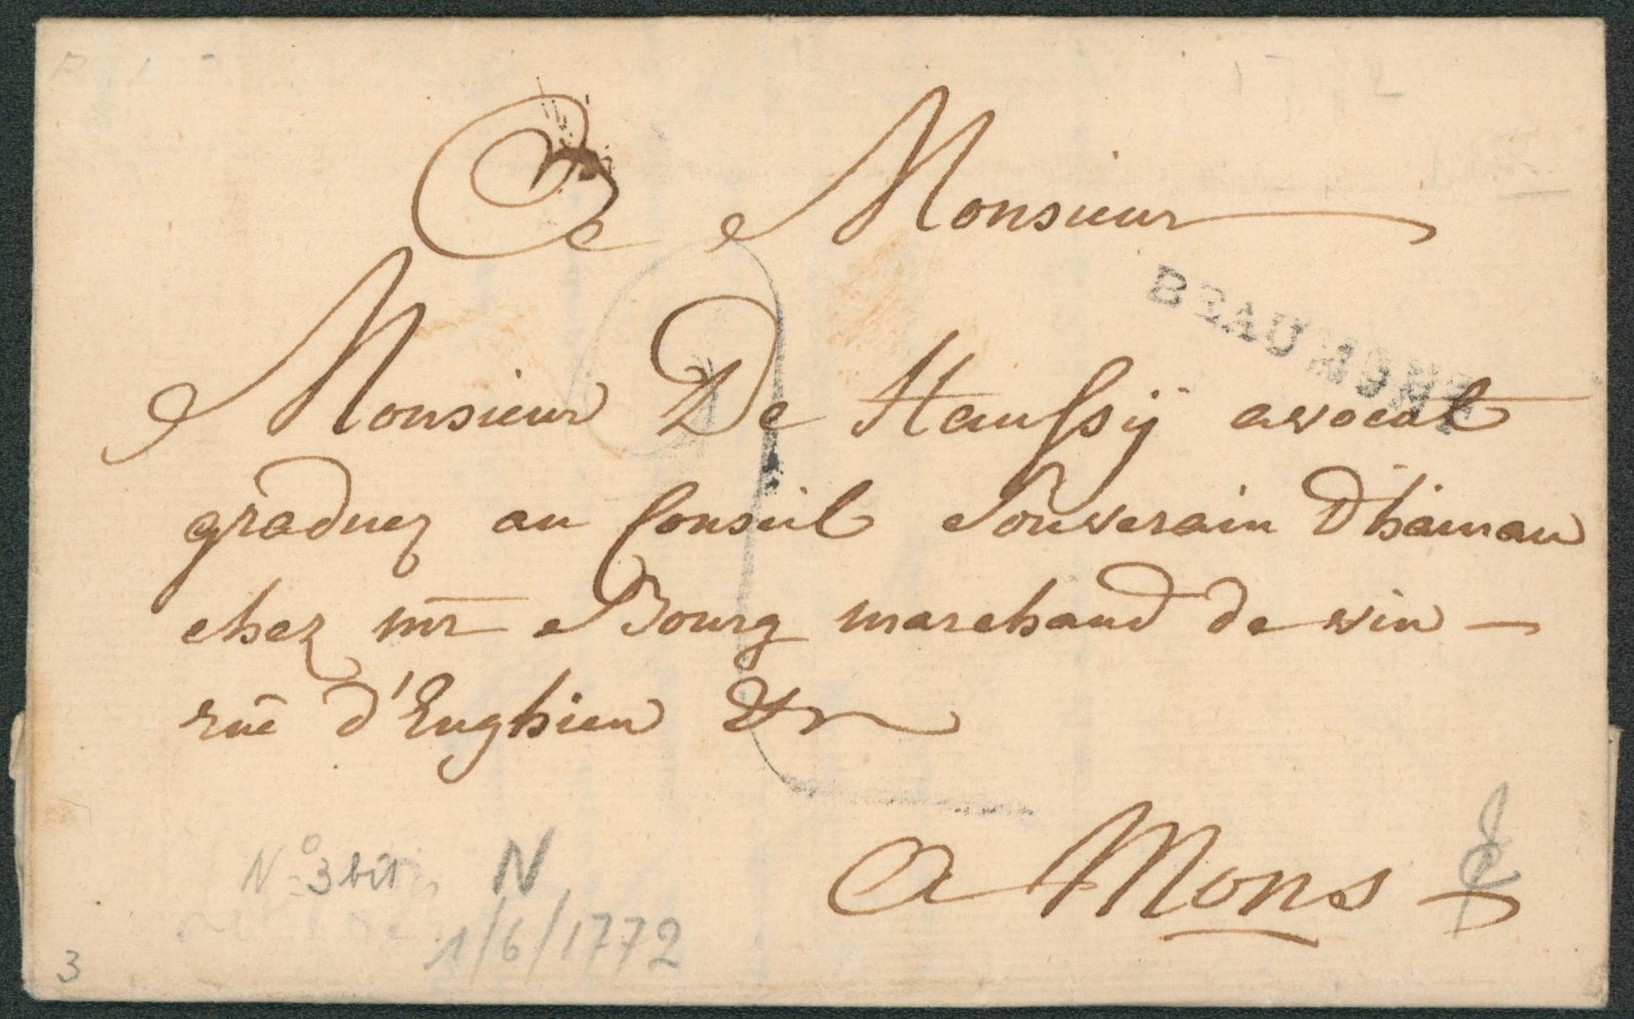 A Monsieur
BEAUMONT
Monsieur De Haussÿ avocat
graduez au Conseil Souverain D'hainau
chez mr Bourg marchand de vin
rue d'Enghien &
a Mons
N° 3 bis N
1/6/1772
3